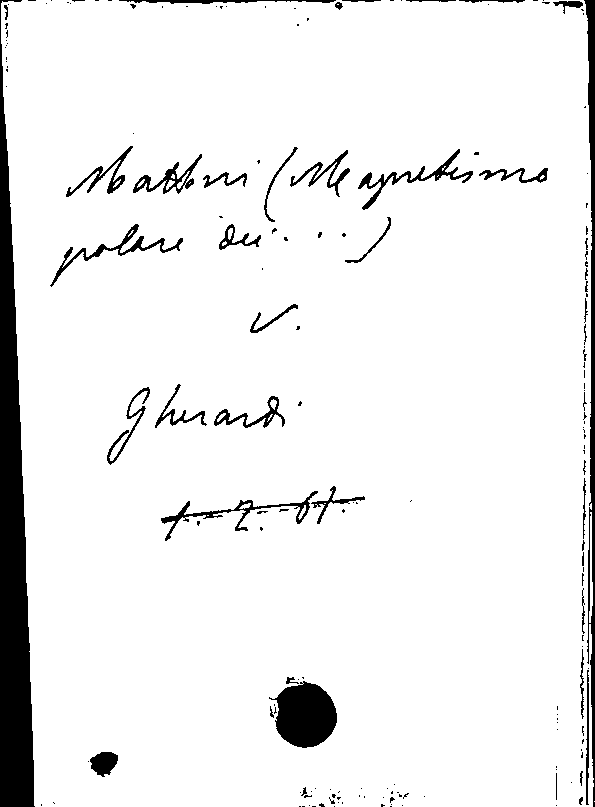 Mattoni (Magnetismo
polare dei....)
V.
Gherardi
1.-2.-61.